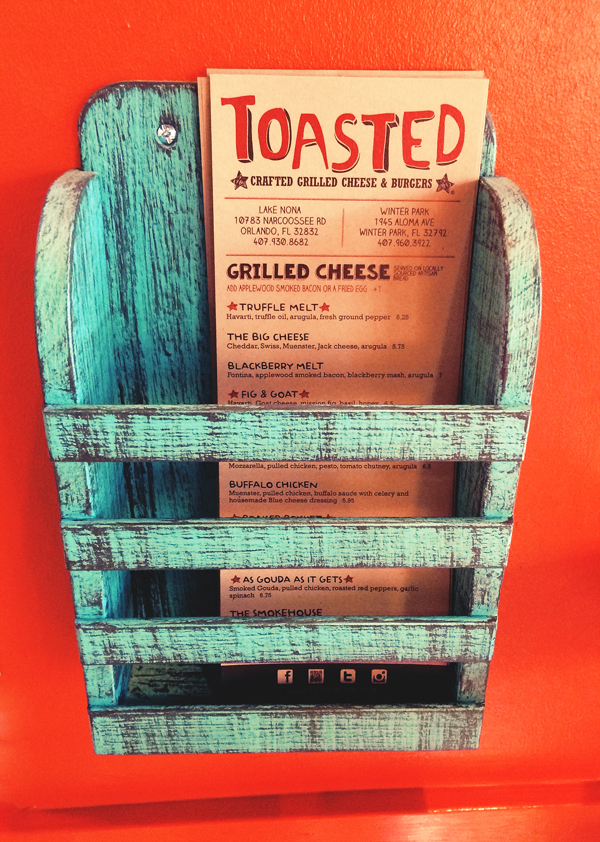 TOASTED
CRAFTED GRILLED CHEESE & BURGERS
LAKE NONA
10783 NARCOOSSEE RD
ORLANDO, FL 32832
407.930.8682
WINTER PARK
1945 ALOMA AVE
WINTER PARK, FL 32792
407.960.3922
GRILLED CHEESE
SERVED ON LOCALLY
SOURCED ARTISAN
BREAD
ADD APPLEWOOD SMOKED BACON OR A FRIED EGG +1
TRUFFLE MELT
Havarti, truffle oil, arugula, fresh ground pepper 6.25
THE BIG CHEESE
Cheddar, Swiss, Muenster, Jack cheese, arugula 5.75
BLACKBERRY MELT
Fontina, applewood smoked bacon, blackberry mash, arugula 7
FIG & GOAT
Havarti, Goat cheese, mission fig, basil, honey
Mozzarella, pulled chicken, pesto, tomato chutney, arugula 6.5
BUFFALO CHICKEN
Muenster, pulled chicken, buffalo sauce with celery and
housemade Blue cheese dressing 6.95
AS GOUDA AS IT GETS
Smoked Gouda, pulled chicken, roasted red peppers, garlic
spinach 6.75
THE SMOKEHOUSE